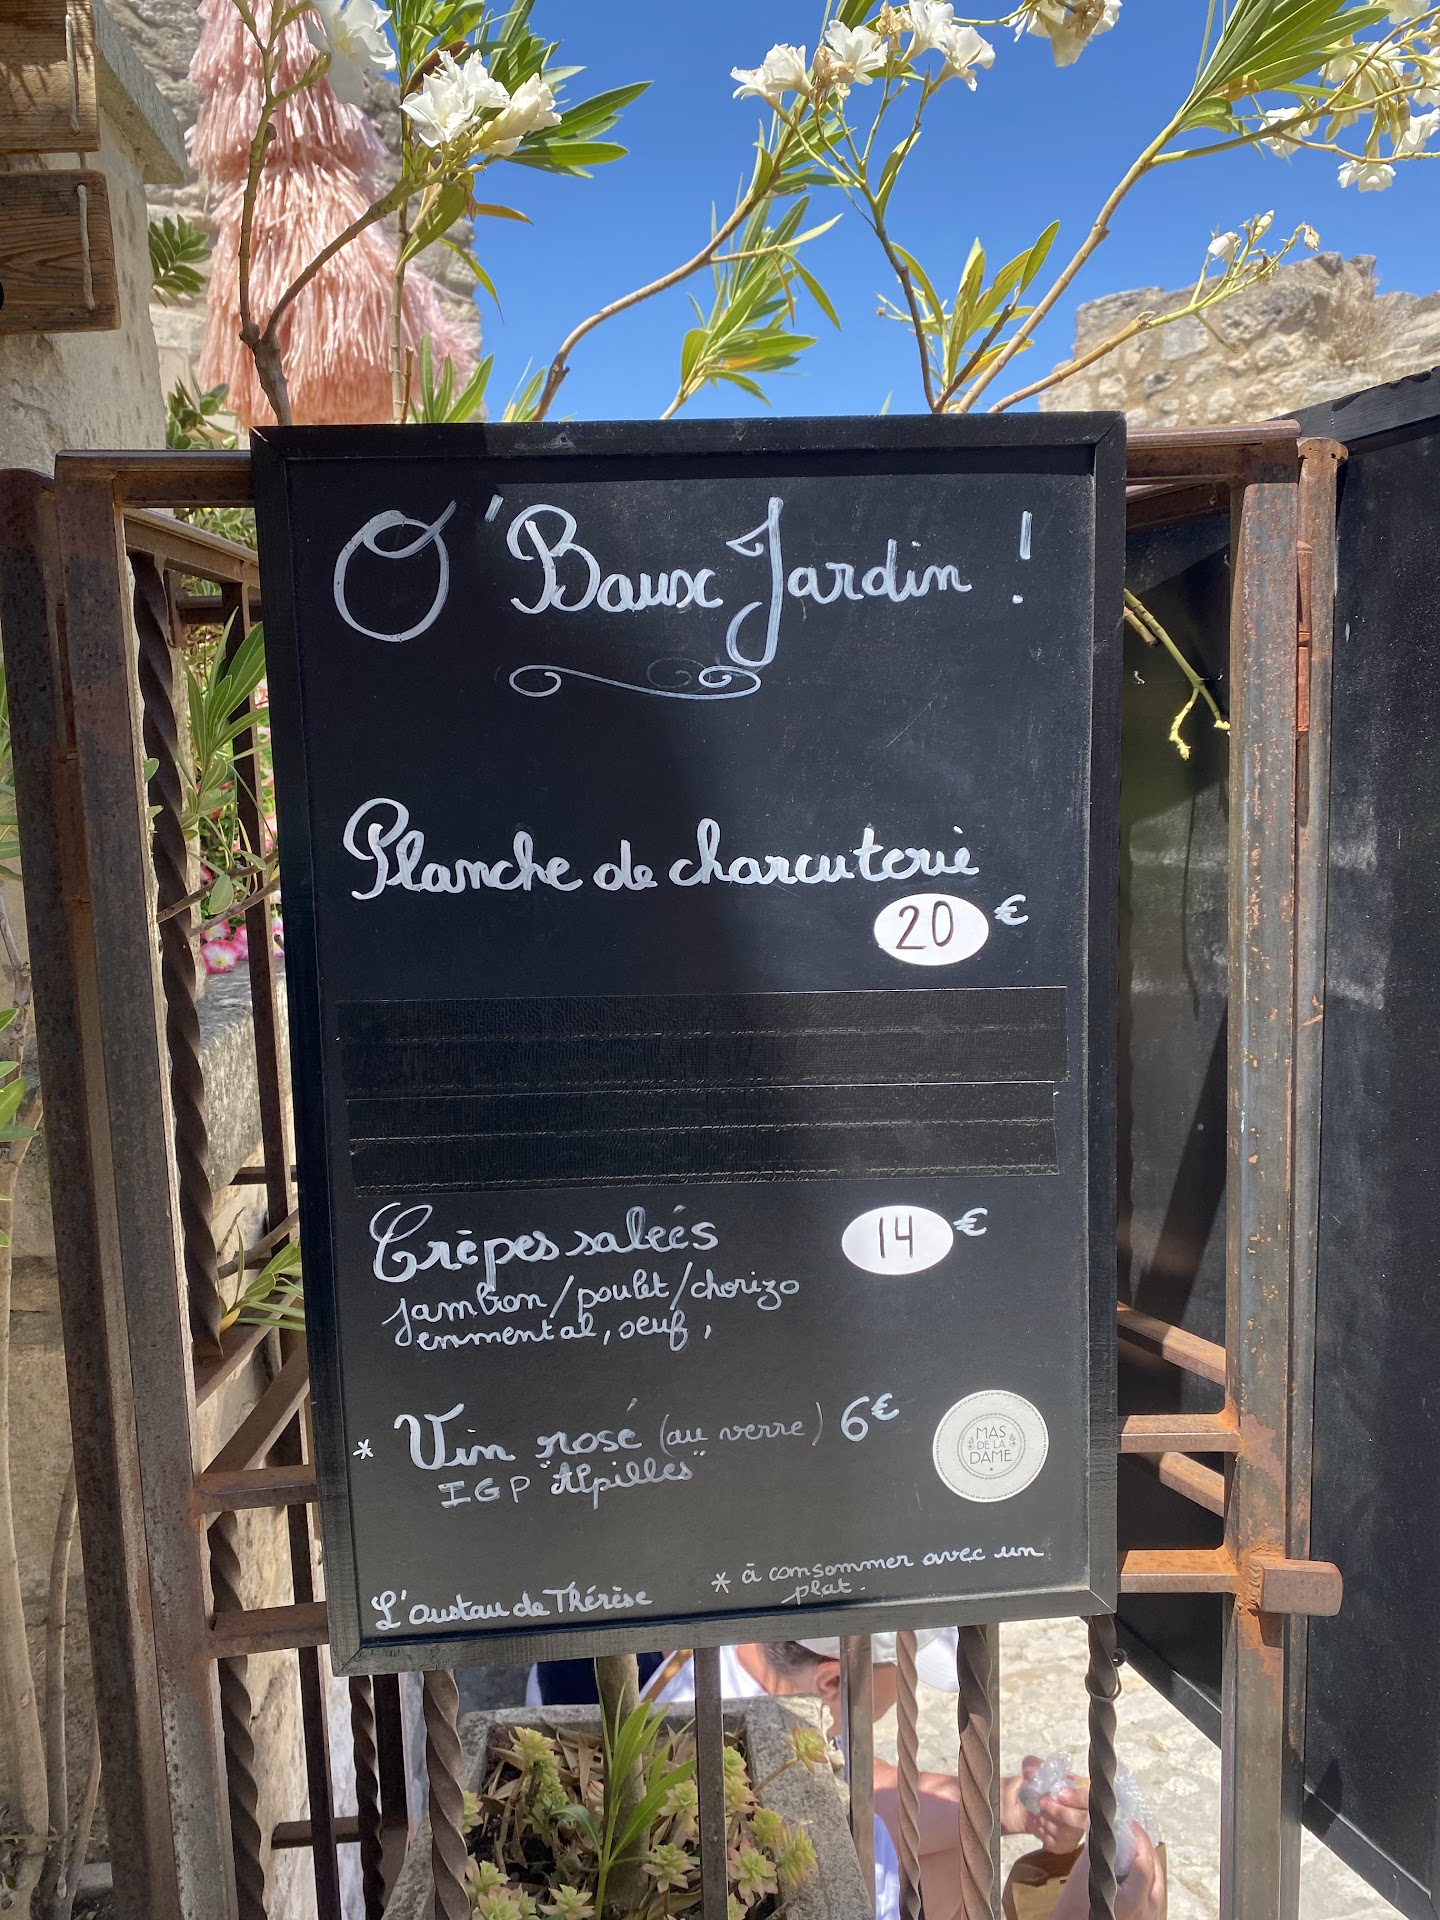 O'Baux Jardin !
Planche de charcuterie
20 €
Crêpes salées 14 €
jambon/poulet/chorizo
emmental, oeuf,
* Vin rosé (au verre) 6€
IGP "Alpilles"
MAS
DE LA
DAME
* à consommer avec un
plat.
L'Oustau de Thérèse